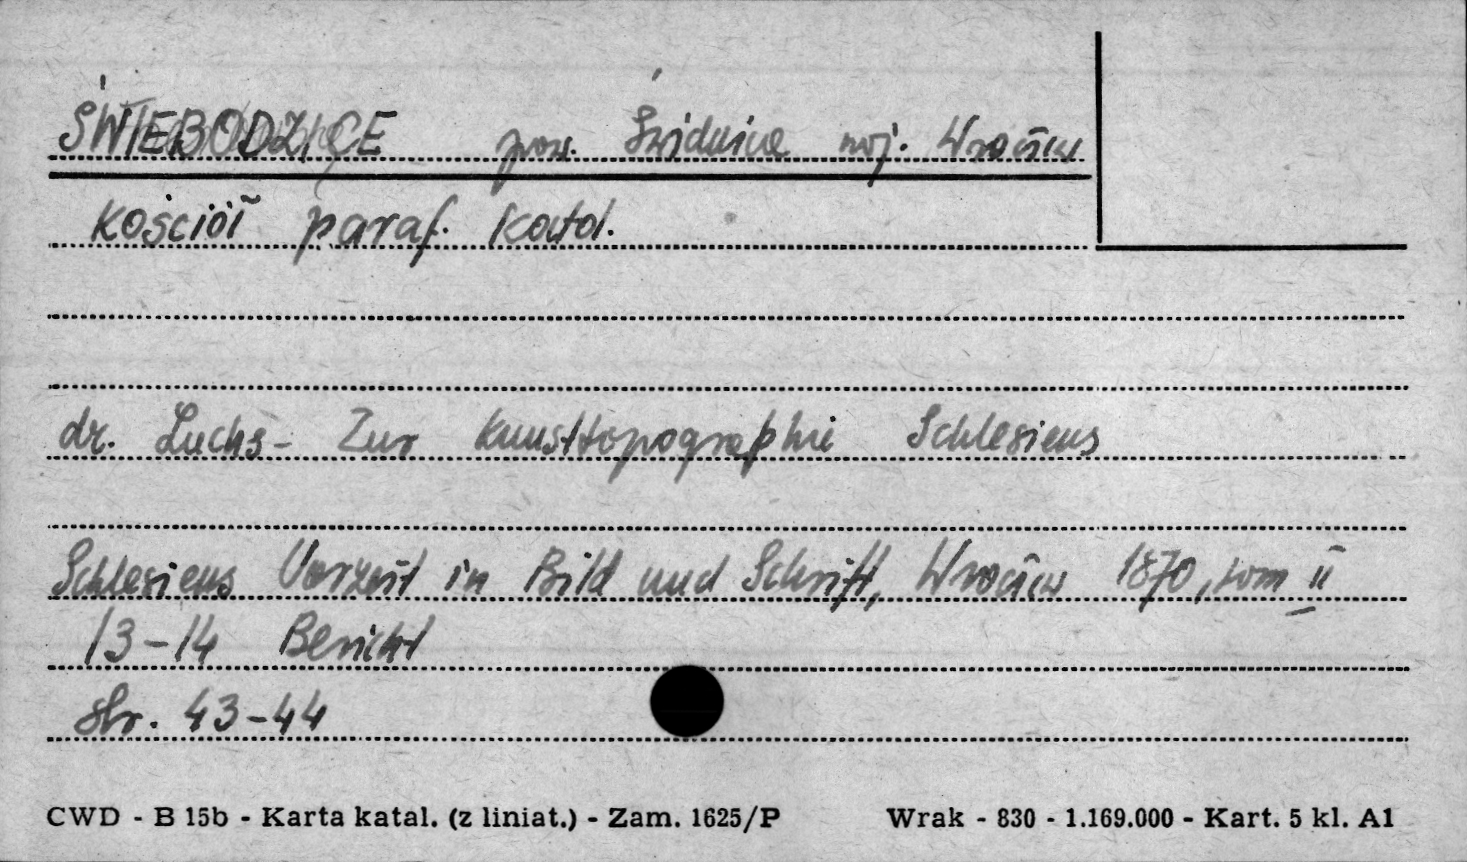 ŚWIEBODZICE pow. Świdnica woj. Wrocław
kościół paraf. katol.
dr. Luchs - Zur Kunsttopographie Schlesiens
Schlesiens Vorzeit in Bild und Schrift, Wrocław 1870, tom II
13-14 Bericht
str. 43-44
CWD - B 15b - Karta katal. (z liniat.) - Zam. 1625/P Wrak - 830 - 1.169.000 - Kart. 5 kl. A1